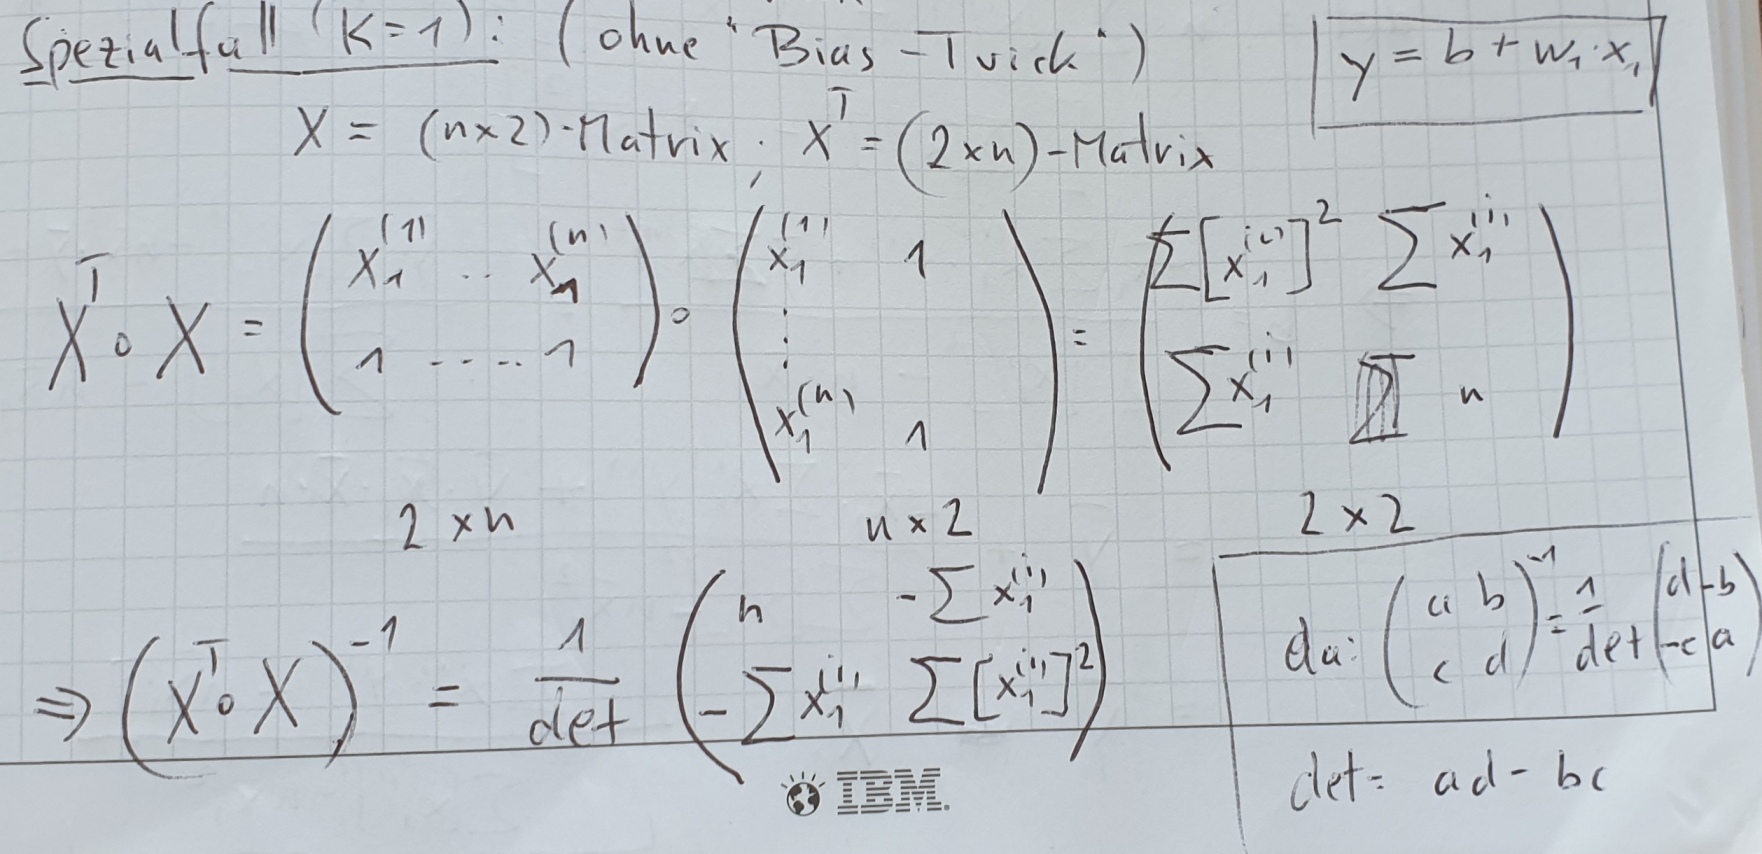 Spezialfall (k=1): (ohne "Bias-Trick")
y = b + w₁·x₁
X = (n×2)-Matrix, Xᵀ = (2×n)-Matrix
Xᵀ ∘ X = ( x₁⁽¹⁾ ·· x₁⁽ⁿ⁾ ; 1 ····· 1 ) ∘ ( x₁⁽¹⁾ 1 ; ⋮ ; x₁⁽ⁿ⁾ 1 ) = ( Σ[x₁⁽ⁱ⁾]² Σ x₁⁽ⁱ⁾ ; Σ x₁⁽ⁱ⁾ n )
2×n n×2 2×2
⇒ (Xᵀ ∘ X)⁻¹ = 1/det ( n -Σ x₁⁽ⁱ⁾ ; -Σ x₁⁽ⁱ⁾ Σ[x₁⁽ⁱ⁾]² )
da: ( a b ; c d )⁻¹ = 1/det ( d -b ; -c a )
det = ad - bc
IBM.